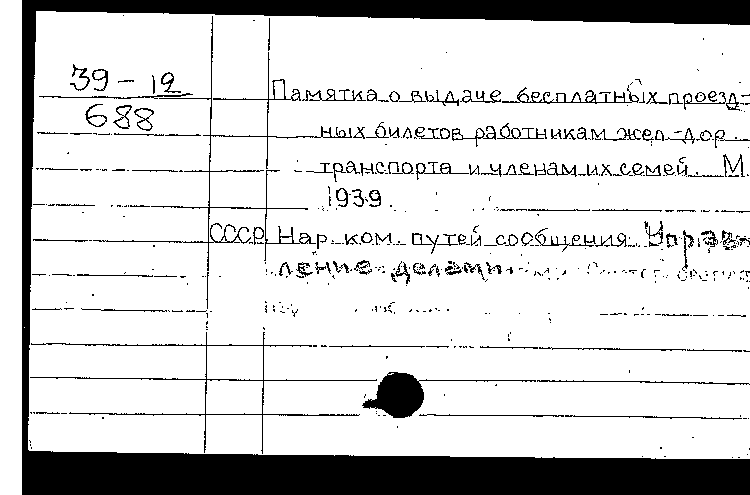 39-12
688
Памятка о выдаче бесплатных проезд-
ных билетов работникам жел.-дор.
транспорта и членам их семей. М.
1939.
СССР. Нар. ком. путей сообщения. Управ-
ление делами